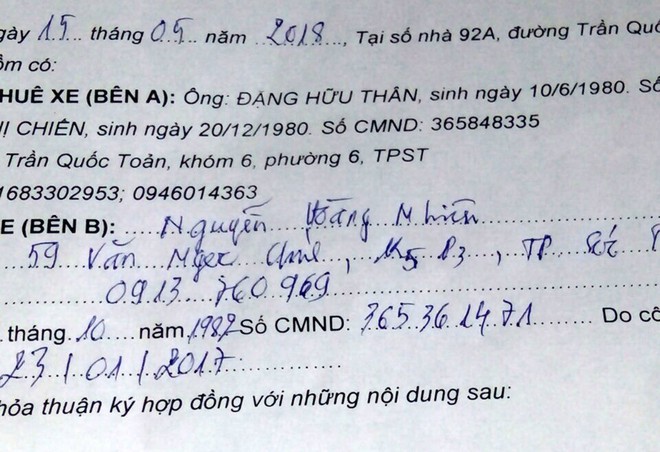 gày 15 tháng 05 năm 2018, Tại số nhà 92A, đường Trần Quố
ồm có:
HUÊ XE (BÊN A): Ông: ĐẶNG HỮU THÂN, sinh ngày 10/6/1980. Số
Ị CHIẾN, sinh ngày 20/12/1980. Số CMND: 365848335
Trần Quốc Toản, khóm 6, phường 6, TPST
1683302953; 0946014363
E (BÊN B): Nguyễn Hoàng Nhiên
59 Văn Ngọc Chính, K5 P3, TP Sóc
0913 760 969
tháng 10 năm 1987 Số CMND: 365361471 Do cô
23/01/2017
hỏa thuận ký hợp đồng với những nội dung sau: